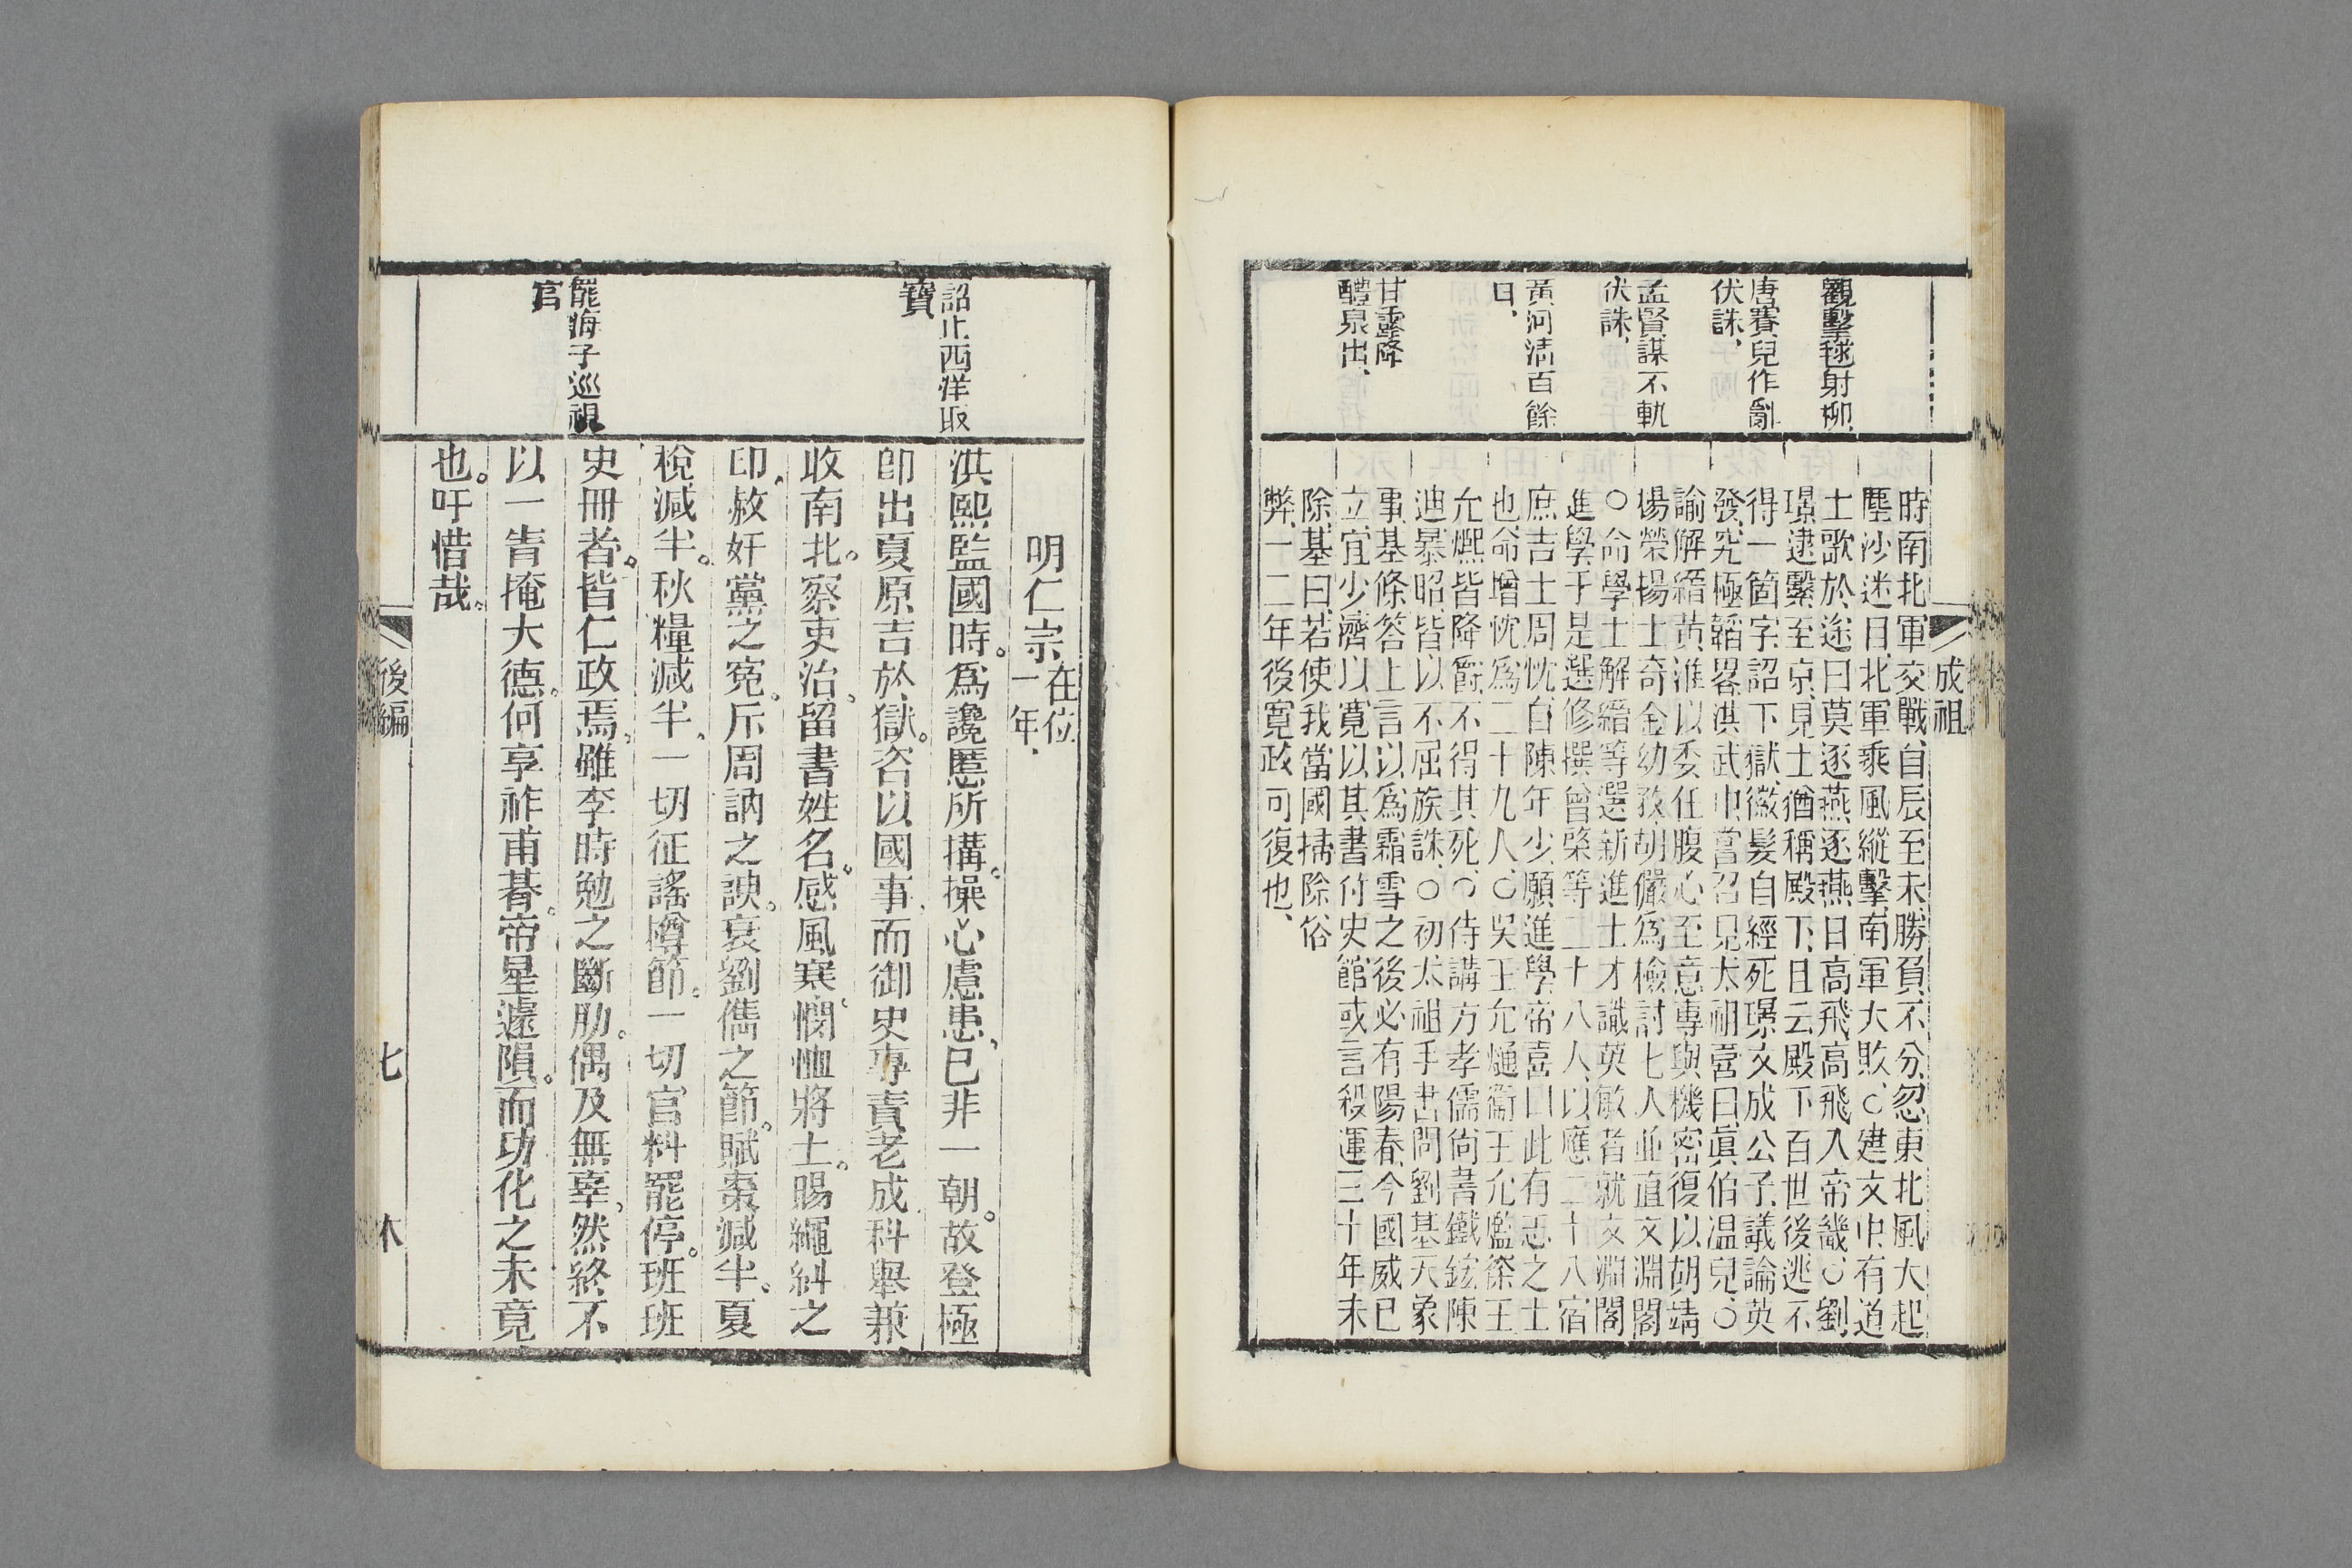 成祖
觀擊毬射柳、
唐賽兒作亂
伏誅、
孟賢謀不軌
伏誅、
黃河清百餘
日、
甘露降
醴泉出、
時南北軍交戰、自辰至未、勝負不分、忽東北風大起
塵沙迷目、北軍乘風縱擊、南軍大敗、○建文中、有道
士歌於途曰、莫逐燕、逐燕日高飛、高飛入帝畿、○劉
璟逮繫至京、見上猶稱殿下、且云殿下百世後、逃不
得一箇字、詔下獄、徽髮自經死、璟文成公子、議論英
發、究極韜畧、洪武中、嘗召見、太祖喜曰、眞伯温兒、○
諭解縉黃淮、以委任腹心至意、專與機密、復以胡靖
楊榮楊士奇金幼孜胡儼、爲檢討、七人並直文淵閣
○命學士解縉等、選新進士才識英敏者、就文淵閣
進學、于是選修撰曾棨等二十八人、以應二十八宿
庶吉士周忱、自陳年少、願進學、帝喜曰、此有志之士
也、命增忱爲二十九人、○吳王允熥衞王允熞徐王
允㷩皆降爵、不得其死、○侍講方孝儒、尙書鐵鉉陳
迪暴昭、皆以不屈族誅、○初太祖手書問劉基天象
事、基條答上言、以爲霜雪之後、必有陽春、今國威已
立、宜少濟以寬、以其書付史館、或言殺運三十年未
除、基曰、若使我當國、掃除俗
弊、一二年後、寬政可復也、
詔止西洋取
寶
罷海子巡視
官
明仁宗、在位
一年、
洪熙監國時。爲讒慝所搆。操心慮患、已非一朝。故登極
卽出夏原吉於獄。咨以國事、而御史專責老成、科舉兼
收南北。察吏治。留書姓名。感風寒、憫恤將士。賜繩糾之
印、赦奸黨之寃。斥周訥之諛。哀劉儁之節。賦棗減半。夏
稅減半。秋糧減半、一切征謠罇節。一切官料罷停。班班
史冊者。皆仁政焉。雖李時勉之斷肋。偶及無辜、然終不
以一眚掩大德。何享祚甫朞。帝星遽隕。而功化之未竟
也。吁惜哉。
後編
七